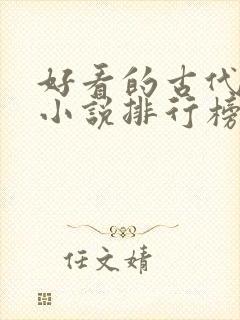 好看的古代
小说排行榜
任文婧